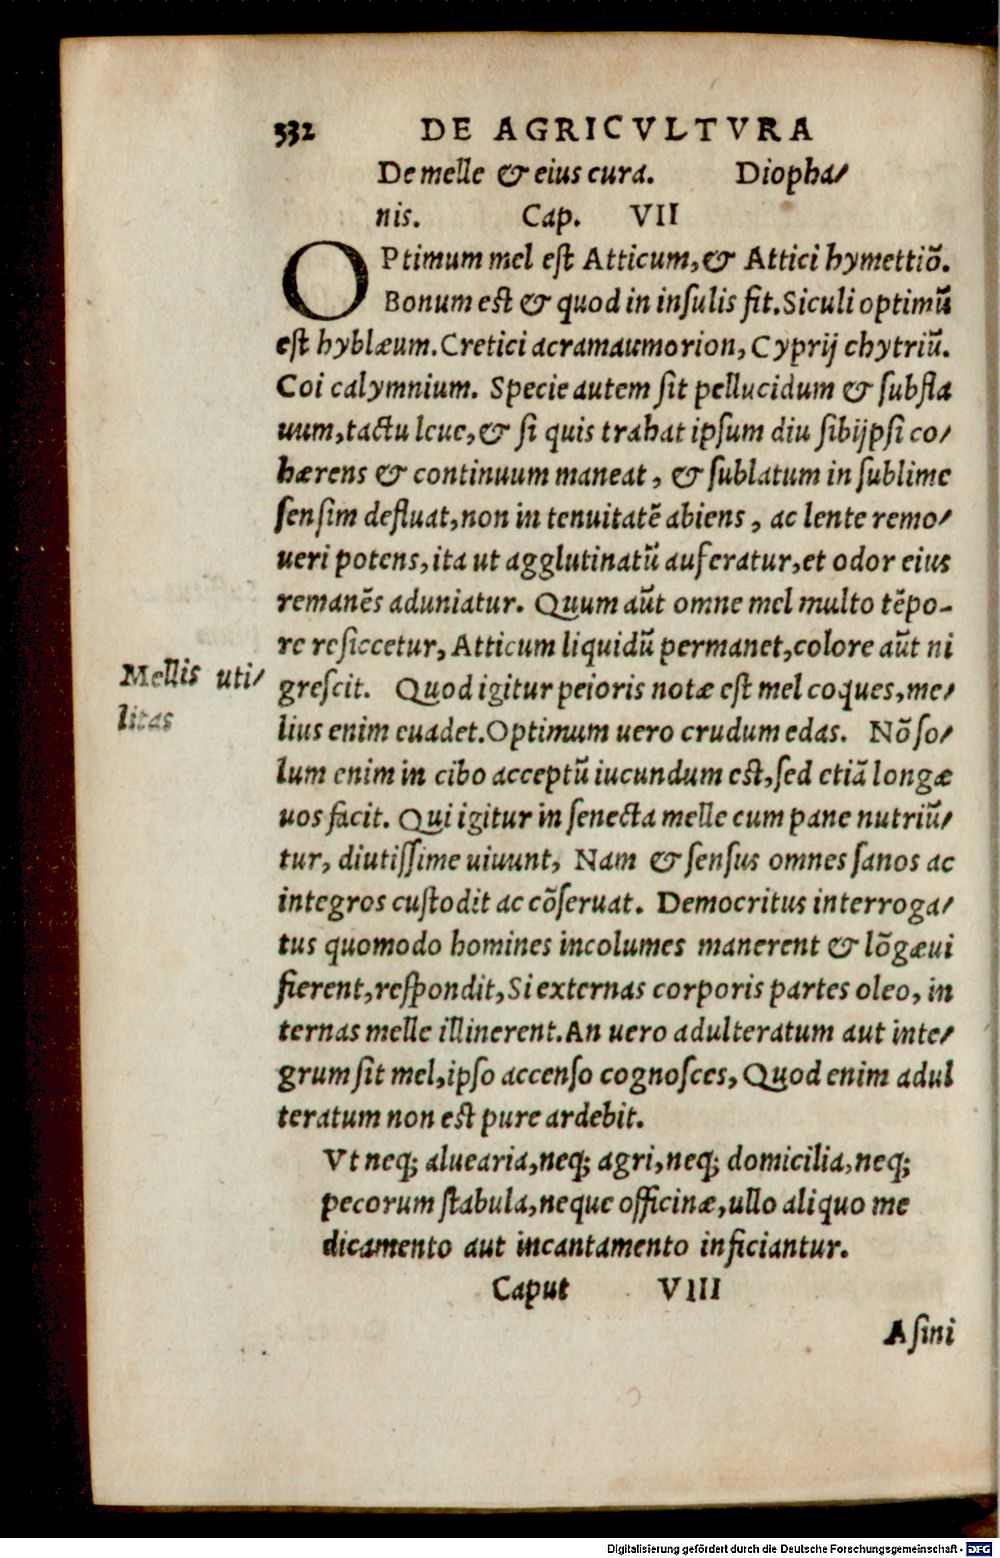 332 DE AGRICVLTVRA
De melle & eius cura. Diopha/
nis. Cap. VII
OPtimum mel est Atticum,& Attici hymettiõ.
Bonum est & quod in insulis fit.Siculi optimũ
est hyblæum.Cretici acramaumorion, Cyprij chytriũ.
Coi calymnium. Specie autem sit pellucidum & subfla
uum,tactu leue,& si quis trahat ipsum diu sibijpsi co/
hærens & continuum maneat, & sublatum in sublime
sensim defluat,non in tenuitatẽ abiens, ac lente remo/
ueri potens,ita ut agglutinatũ auferatur,et odor eius
remanẽs aduniatur. Quum aũt omne mel multo tẽpo-
re resiccetur, Atticum liquidũ permanet,colore aũt ni
Mellis uti/
litas
grescit. Quod igitur peioris notæ est mel coques,me/
lius enim euadet.Optimum uero crudum edas. Nõ so/
lum enim in cibo acceptũ iucundum est,sed etiã longæ
uos facit. Qui igitur in senecta melle cum pane nutriũ/
tur, diutissime uiuunt, Nam & sensus omnes sanos ac
integros custodit ac cõseruat. Democritus interroga/
tus quomodo homines incolumes manerent & lõgæui
fierent,respondit,Si externas corporis partes oleo, in
ternas melle illinerent.An uero adulteratum aut inte/
grum sit mel,ipso accenso cognosces, Quod enim adul
teratum non est pure ardebit.
Vt neq; aluearia,neq; agri,neq; domicilia,neq;
pecorum stabula,neque officinæ,ullo aliquo me
dicamento aut incantamento inficiantur.
Caput VIII
Asini
Digitalisierung gefördert durch die Deutsche Forschungsgemeinschaft - DFG